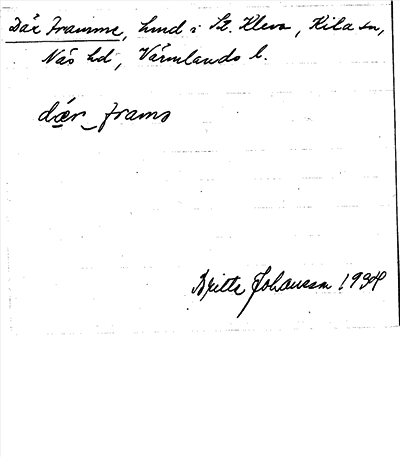 Där Framme, hmd i St. Kleva, Kila sn,
Näs hd, Värmlands l.
dær frams
Britta Johansson 1934